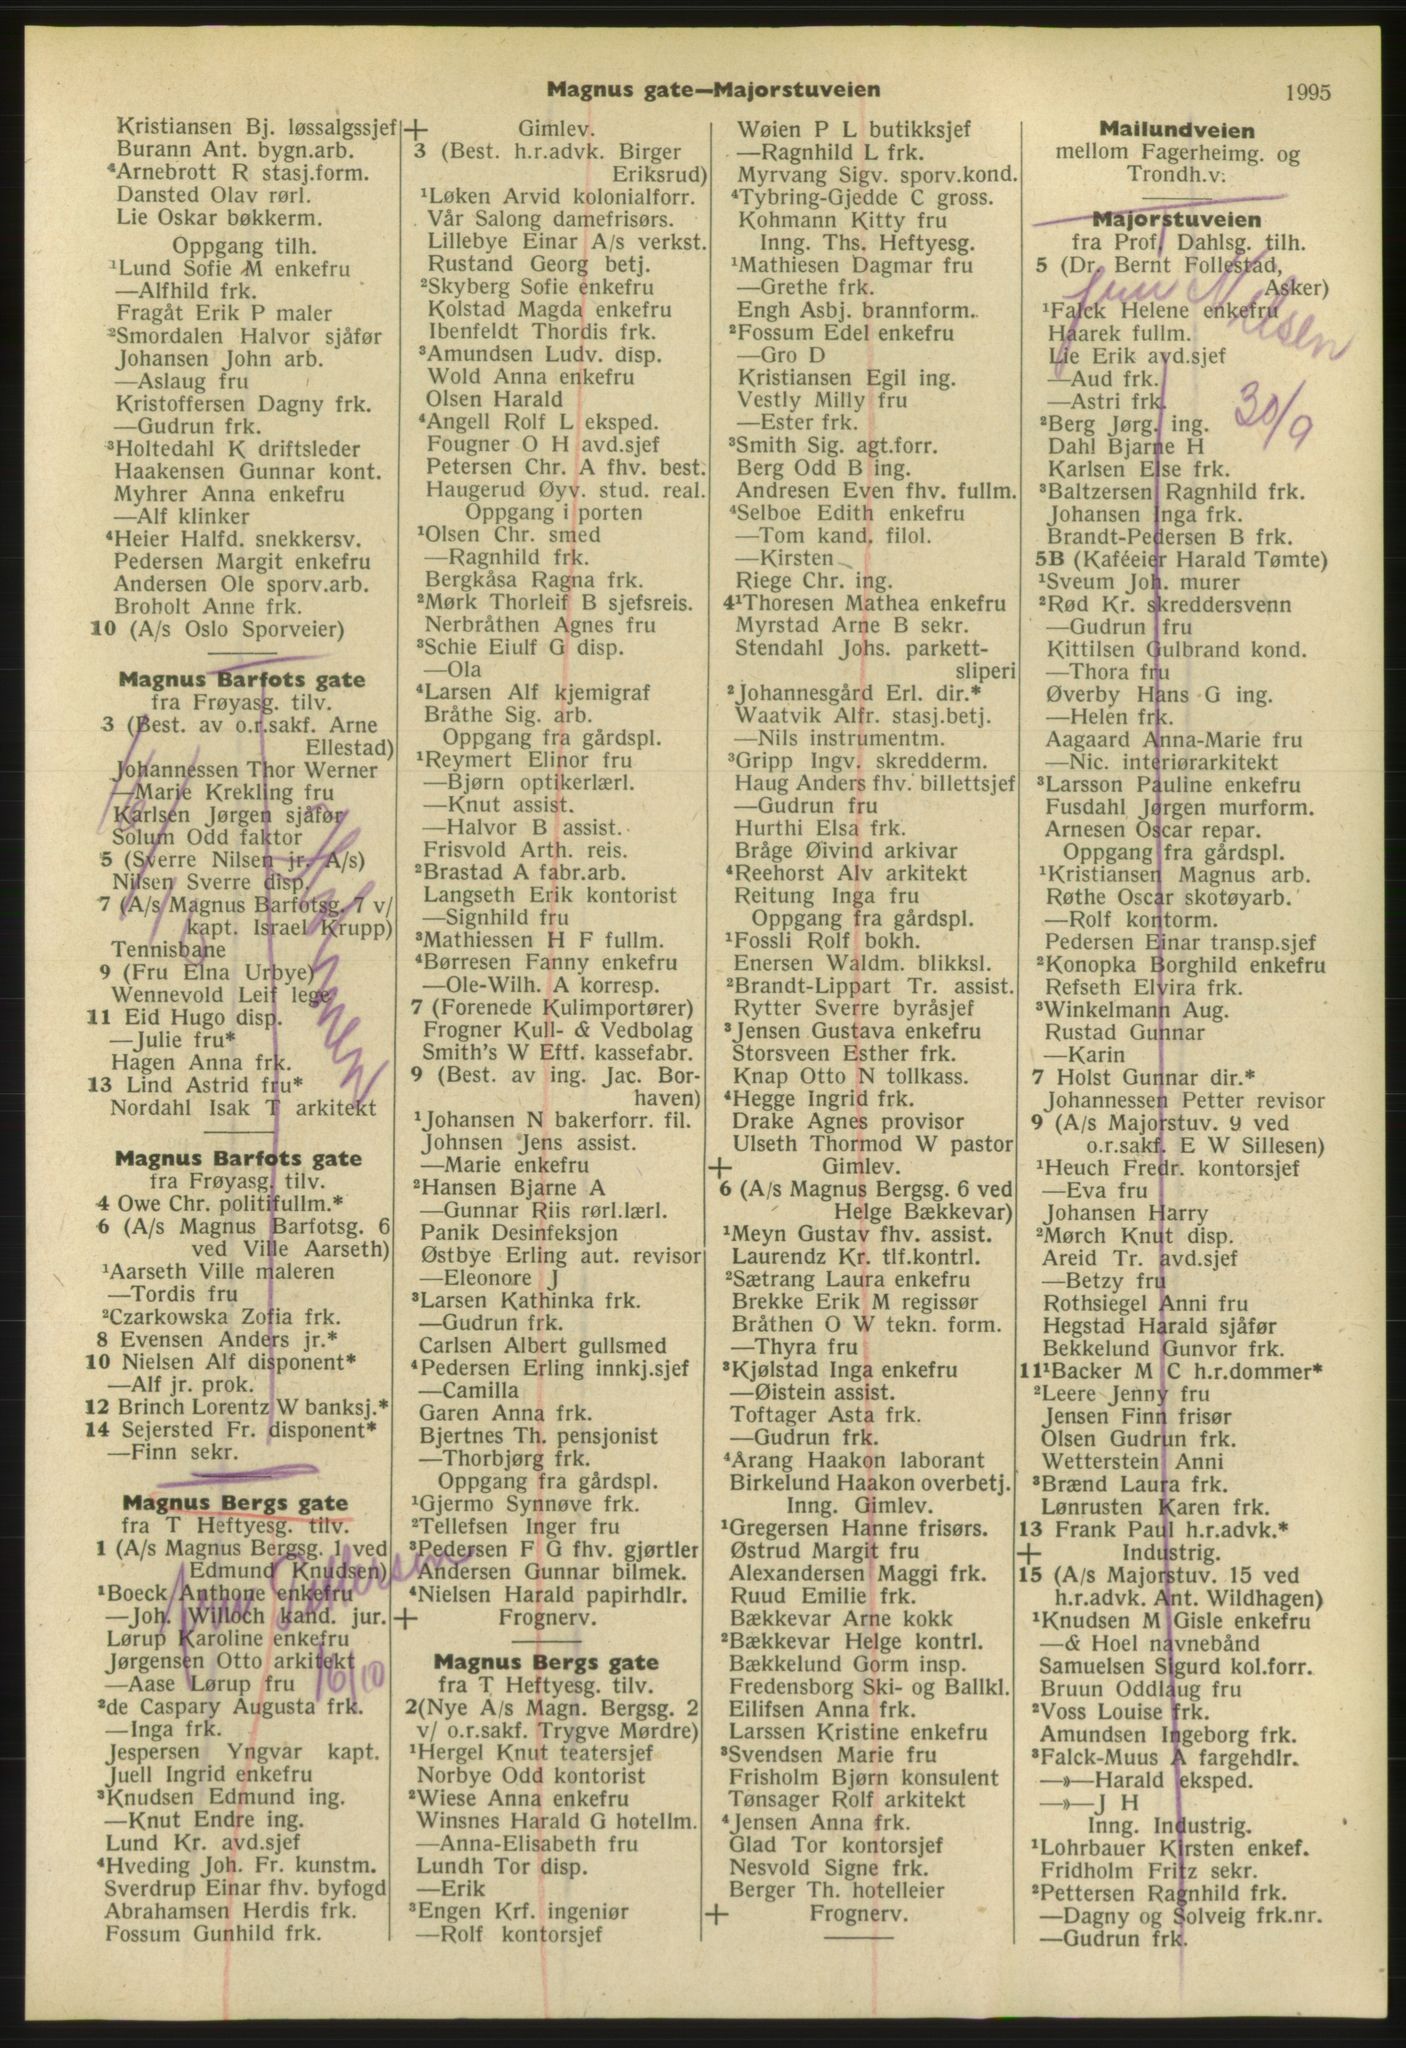 Magnus gate—Majorstuveien
1995
Kristiansen Bj. løssalgssjef
Burann Ant. bygn.arb.
⁴Arnebrott R stasj.form.
Dansted Olav rørl.
Lie Oskar bøkkerm.
Oppgang tilh.
¹Lund Sofie M enkefru
—Alfhild frk.
Fragåt Erik P maler
²Smordalen Halvor sjåfør
Johansen John arb.
—Aslaug fru
Kristoffersen Dagny frk.
—Gudrun frk.
³Holtedahl K driftsleder
Haakensen Gunnar kont.
Myhrer Anna enkefru
—Alf klinker
⁴Heier Halfd. snekkersv.
Pedersen Margit enkefru
Andersen Ole sporv.arb.
Broholt Anne frk.
10 (A/s Oslo Sporveier)
Magnus Barfots gate
fra Frøyasg. tilv.
3 (Best. av o.r.sakf. Arne
Ellestad)
Johannessen Thor Werner
—Marie Krekling fru
Karlsen Jørgen sjåfør
Solum Odd faktor
5 (Sverre Nilsen jr. A/s)
Nilsen Sverre disp.
7 (A/s Magnus Barfotsg. 7 v/
kapt. Israel Krupp)
Tennisbane
9 (Fru Elna Urbye)
Wennevold Leif lege
11 Eid Hugo disp.
—Julie fru*
Hagen Anna frk.
13 Lind Astrid fru*
Nordahl Isak T arkitekt
Magnus Barfots gate
fra Frøyasg. tilv.
4 Owe Chr. politifullm.*
6 (A/s Magnus Barfotsg. 6
ved Ville Aarseth)
¹Aarseth Ville maleren
—Tordis fru
²Czarkowska Zofia frk.
8 Evensen Anders jr.*
10 Nielsen Alf disponent*
—Alf jr. prok.
12 Brinch Lorentz W banksj.*
14 Sejersted Fr. disponent*
—Finn sekr.
Magnus Bergs gate
fra T Heftyesg. tilv.
1 (A/s Magnus Bergsg. 1 ved
Edmund Knudsen)
¹Boeck Anthone enkefru
—Joh. Willoch kand. jur.
Lørup Karoline enkefru
Jørgensen Otto arkitekt
—Aase Lørup fru
16/10
²de Caspary Augusta frk.
—Inga frk.
Jespersen Yngvar kapt.
Juell Ingrid enkefru
³Knudsen Edmund ing.
—Knut Endre ing.
Lund Kr. avd.sjef
⁴Hveding Joh. Fr. kunstm.
Sverdrup Einar fhv. byfogd
Abrahamsen Herdis frk.
Fossum Gunhild frk.
+ Gimlev.
3 (Best. h.r.advk. Birger
Eriksrud)
¹Løken Arvid kolonialforr.
Vår Salong damefrisørs.
Lillebye Einar A/s verkst.
Rustand Georg betj.
²Skyberg Sofie enkefru
Kolstad Magda enkefru
Ibenfeldt Thordis frk.
³Amundsen Ludv. disp.
Wold Anna enkefru
Olsen Harald
⁴Angell Rolf L eksped.
Fougner O H avd.sjef
Petersen Chr. A fhv. best.
Haugerud Øyv. stud. real.
Oppgang i porten
¹Olsen Chr. smed
—Ragnhild frk.
Bergkåsa Ragna frk.
²Mørk Thorleif B sjefsreis.
Nerbråthen Agnes fru
³Schie Eiulf G disp.
—Ola
⁴Larsen Alf kjemigraf
Bråthe Sig. arb.
Oppgang fra gårdspl.
¹Reymert Elinor fru
—Bjørn optikerlærl.
—Knut assist.
—Halvor B assist.
Frisvold Arth. reis.
²Brastad A fabr.arb.
Langseth Erik kontorist
—Signhild fru
³Mathiessen H F fullm.
⁴Børresen Fanny enkefru
—Ole-Wilh. A korresp.
7 (Forenede Kulimportører)
Frogner Kull- & Vedbolag
Smith's W Eftf. kassefabr.
9 (Best. av ing. Jac. Bor-
haven)
¹Johansen N bakerforr. fil.
Johnsen Jens assist.
—Marie enkefru
²Hansen Bjarne A
—Gunnar Riis rørl.lærl.
Panik Desinfeksjon
Østbye Erling aut. revisor
—Eleonore J
³Larsen Kathinka frk.
—Gudrun frk.
Carlsen Albert gullsmed
⁴Pedersen Erling innkj.sjef
—Camilla
Garen Anna frk.
Bjertnes Th. pensjonist
—Thorbjørg frk.
Oppgang fra gårdspl.
¹Gjermo Synnøve frk.
²Tellefsen Inger fru
³Pedersen F G fhv. gjørtler
Andersen Gunnar bilmek.
⁴Nielsen Harald papirhdlr.
+ Frognerv.
Magnus Bergs gate
fra T Heftyesg. tilv.
2(Nye A/s Magn. Bergsg. 2
v/ o.r.sakf. Trygve Mørdre)
¹Hergel Knut teatersjef
Norbye Odd kontorist
²Wiese Anna enkefru
Winsnes Harald G hotellm.
—Anna-Elisabeth fru
Lundh Tor disp.
—Erik
³Engen Krf. ingeniør
—Rolf kontorsjef
Wøien P L butikksjef
—Ragnhild L frk.
Myrvang Sigv. sporv.kond.
⁴Tybring-Gjedde C gross.
Kohmann Kitty fru
Inng. Ths. Heftyesg.
¹Mathiesen Dagmar fru
—Grethe frk.
Engh Asbj. brannform.
²Fossum Edel enkefru
—Gro D
Kristiansen Egil ing.
Vestly Milly fru
—Ester frk.
³Smith Sig. agt.forr.
Berg Odd B ing.
Andresen Even fhv. fullm.
⁴Selboe Edith enkefru
—Tom kand. filol.
—Kirsten
Riege Chr. ing.
4¹Thoresen Mathea enkefru
Myrstad Arne B sekr.
Stendahl Johs. parkett-
sliperi
²Johannesgård Erl. dir.*
Waatvik Alfr. stasj.betj.
—Nils instrumentm.
³Gripp Ingv. skredderm.
Haug Anders fhv. billettsjef
—Gudrun fru
Hurthi Elsa frk.
Bråge Øivind arkivar
⁴Reehorst Alv arkitekt
Reitung Inga fru
Oppgang fra gårdspl.
¹Fossli Rolf bokh.
Enersen Waldm. blikksl.
²Brandt-Lippart Tr. assist.
Rytter Sverre byråsjef
³Jensen Gustava enkefru
Storsveen Esther frk.
Knap Otto N tollkass.
⁴Hegge Ingrid frk.
Drake Agnes provisor
Ulseth Thormod W pastor
+ Gimlev.
6 (A/s Magnus Bergsg. 6 ved
Helge Bækkevar)
¹Meyn Gustav fhv. assist.
Laurendz Kr. tlf.kontrl.
²Sætrang Laura enkefru
Brekke Erik M regissør
Bråthen O W tekn. form.
—Thyra fru
³Kjølstad Inga enkefru
—Øistein assist.
Toftager Asta frk.
—Gudrun frk.
⁴Årang Haakon laborant
Birkelund Haakon overbetj.
Inng. Gimlev.
¹Gregersen Hanne frisørs.
Østrud Margit fru
Alexandersen Maggi frk.
Ruud Emilie frk.
Bækkevar Arne kokk
²Bækkevar Helge kontrl.
Bækkelund Gorm insp.
Fredensborg Ski- og Ballkl.
Eilifsen Anna frk.
Larssen Kristine enkefru
³Svendsen Marie fru
Frisholm Bjørn konsulent
Tønsager Rolf arkitekt
⁴Jensen Anna frk.
Glad Tor kontorsjef
Nesvold Signe frk.
Berger Th. hotelleier
+ Frognerv.
Mailundveien
mellom Fagerheimg. og
Trondh.v.
Majorstuveien
fra Prof. Dahlsg. tilh.
5 (Dr. Bernt Follestad,
Asker)
¹Falck Helene enkefru
Haarek fullm.
Lie Erik avd.sjef
—Aud frk.
—Astri frk.
30/9
²Berg Jørg. ing.
Dahl Bjarne H
Karlsen Else frk.
³Baltzersen Ragnhild frk.
Johansen Inga frk.
Brandt-Pedersen B frk.
5B (Kaféeier Harald Tømte)
¹Sveum Joh. murer
²Rød Kr. skreddersvenn
—Gudrun fru
Kittilsen Gulbrand kond.
—Thora fru
Øverby Hans G ing.
—Helen frk.
Aagaard Anna-Marie fru
—Nic. interiørarkitekt
³Larsson Pauline enkefru
Fusdahl Jørgen murform.
Arnesen Oscar repar.
Oppgang fra gårdspl.
¹Kristiansen Magnus arb.
Røthe Oscar skotøyarb.
—Rolf kontorm.
Pedersen Einar transp.sjef
²Konopka Borghild enkefru
Refseth Elvira frk.
³Winkelmann Aug.
Rustad Gunnar
—Karin
7 Holst Gunnar dir.*
Johannessen Petter revisor
9 (A/s Majorstuv. 9 ved
o.r.sakf. E W Sillesen)
¹Heuch Fredr. kontorsjef
—Eva fru
Johansen Harry
²Mørch Knut disp.
Areid Tr. avd.sjef
—Betzy fru
Rothsiegel Anni fru
Hegstad Harald sjåfør
Bekkelund Gunvor frk.
11¹Backer M C h.r.dommer*
²Leere Jenny fru
Jensen Finn frisør
Olsen Gudrun frk.
Wetterstein Anni
³Brænd Laura frk.
Lønrusten Karen frk.
13 Frank Paul h.r.advk.*
+ Industrig.
15 (A/s Majorstuv. 15 ved
h.r.advk. Ant. Wildhagen)
¹Knudsen M Gisle enkefru
—& Hoel navnebånd
Samuelsen Sigurd kol.forr.
Bruun Oddlaug fru
²Voss Louise frk.
Amundsen Ingeborg frk.
³Falck-Muus A fargehdlr.
—»—Harald eksped.
—»—J H
Inng. Industrig.
¹Lohrbauer Kirsten enkef.
Fridholm Fritz sekr.
²Pettersen Ragnhild frk.
—Dagny og Solveig frk.nr.
—Gudrun frk.